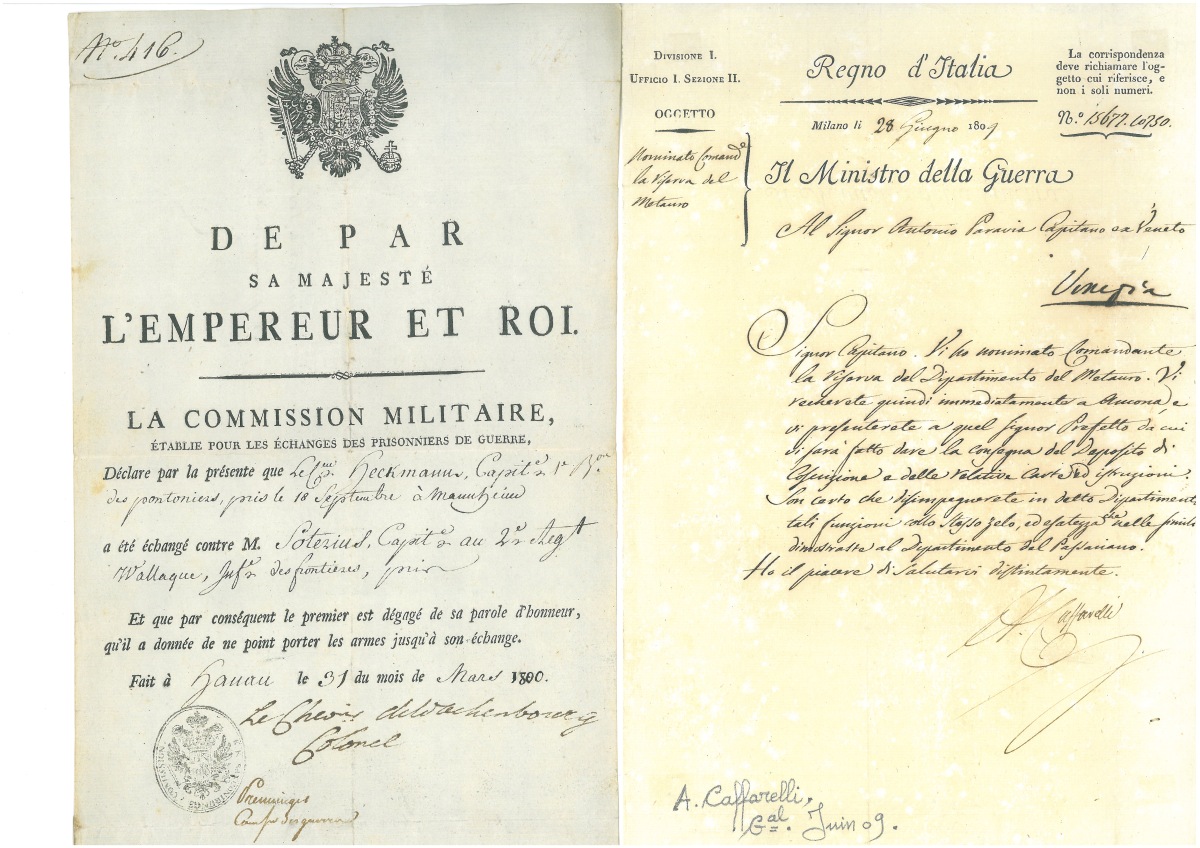 No. 416.
DE PAR
SA MAJESTÉ
L'EMPEREUR ET ROI.
LA COMMISSION MILITAIRE,
ÉTABLIE POUR LES ÉCHANGES DES PRISONNIERS DE GUERRE,
Déclare par la présente que Le Heckmann, Capit.e 1.r
des pontoniers, pris le 18 Septembre à Mannheim
a été échangé contre M. Soterius, Capit.e au 2.e Regt
Wallaque, Inf.e des frontières, pris
Et que par conséquent le premier est dégagé de sa parole d'honneur,
qu'il a donnée de ne point porter les armes jusqu'à son échange.
Fait à Hanau le 31 du mois de Mars 1800.
Le Chev.r
Colonel
DIVISIONE I.
UFFICIO I. SEZIONE II.
OGGETTO
Nominato Comand.e
la Riserva del
Metauro
Regno d'Italia
Milano li 28 Giugno 1809
La corrispondenza
deve richiamare l'og-
getto cui riferisce, e
non i soli numeri.
N.o 15677. 10750.
Il Ministro della Guerra
Al Signor Antonio Paravia Capitano ex Veneto
Venezia
Signor Capitano. Vi ho nominato Comandante
la Riserva del Dipartimento del Metauro. Vi
recherete quindi immediatamente a Ancona, e
vi presenterete a quel Signor Prefetto da cui
vi sarà fatto dare la consegna del Deposito di
Coscrizione e delle relative carte ed istruzioni.
Son certo che disimpegnerete in detto Dipartimento
tali funzioni collo stesso zelo, ed esatezza che nelle simili
dimostraste al Dipartimento del Passariano.
Ho il piacere di salutarvi distintamente.
A. Caffarelli
A. Caffarelli,
Gal. Juin 09.